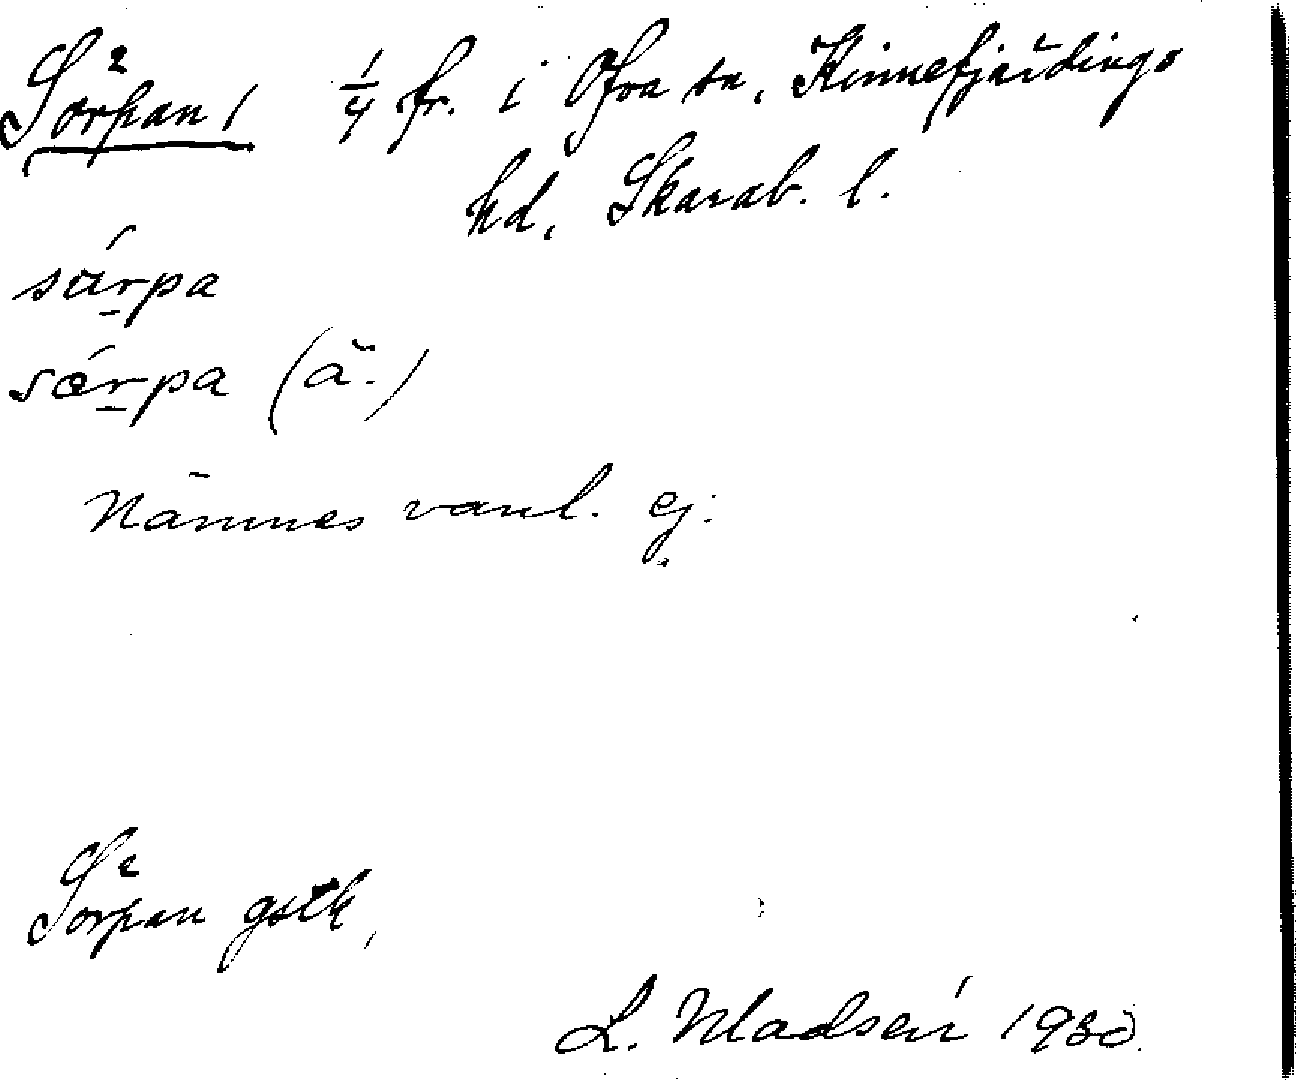 Sörpan 1 1/4 fr. i Öfra sn, Kinnefjärdings
hd, Skarab. l.
sárpa
sǽrpa (ä.)
Nämnes vanl. ej.
Sörpan gstk,
L. Madsén 1930.